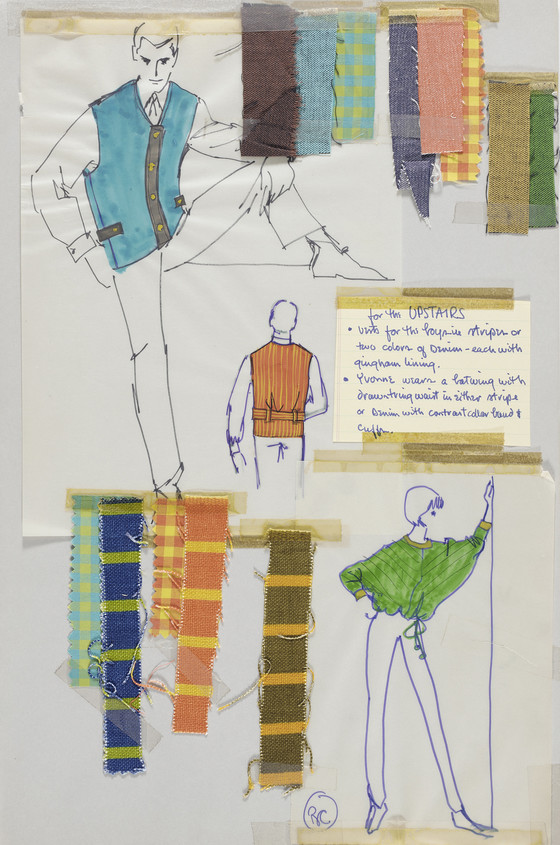 for the UPSTAIRS
• vests for the boys in stripes or
two colors of Denim - each with
gingham lining.
• Yvonne wears a batwing with
drawstring waist in either stripe
or Denim with contrast collar band &
cuffs.